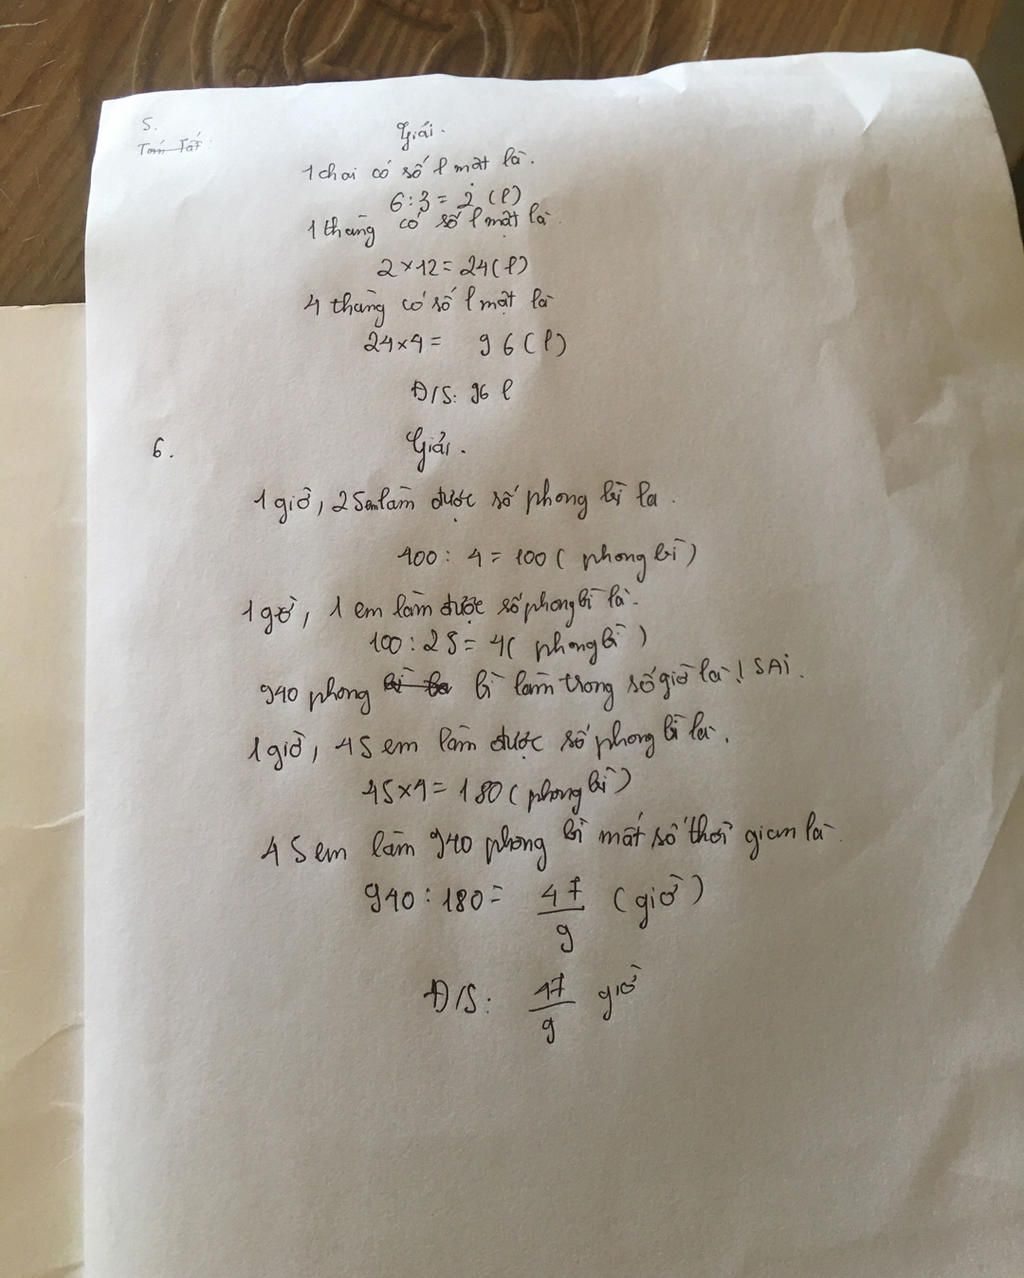 5.
Tóm Tắt:
Giải.
1 chai có số l mật là.
6 : 3 = 2 (l)
1 thùng có số l mật là.
2 × 12 = 24 (l)
4 thùng có số l mật là
24 × 4 = 96 (l)
Đ/S: 96 l
6.
Giải.
1 giờ, 25 em làm được số phong bì la.
400 : 4 = 100 ( phong bì )
1 giờ, 1 em làm được số phong bì là.
100 : 25 = 4 ( phong bì )
940 phong bì làm trong số giờ là ! SAI.
1 giờ, 45 em làm được số phong bì là.
45 × 4 = 180 ( phong bì )
45 em làm 940 phong bì mất số thời gian là
940 : 180 = 47/9 ( giờ )
Đ/S: 47/9 giờ